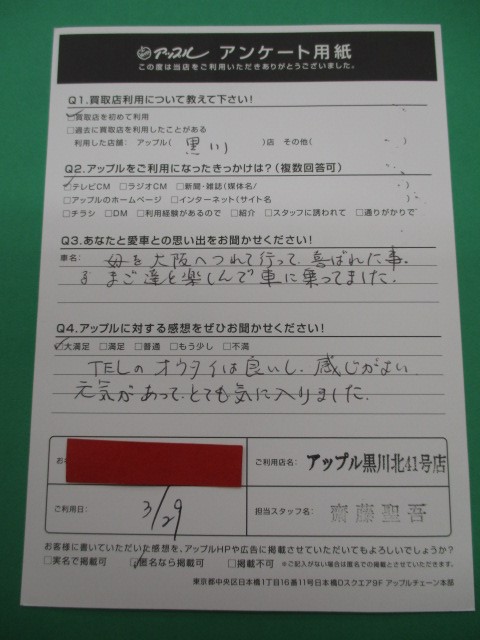 アップル アンケート用紙
この度は当店をご利用いただきありがとうございました。
Q1.買取店利用について教えて下さい!
☑買取店を初めて利用
□過去に買取店を利用したことがある
利用した店舗: アップル( 黒川 )店 その他( )
Q2.アップルをご利用になったきっかけは?(複数回答可)
☑テレビCM □ラジオCM □新聞・雑誌(媒体名/ )
□アップルのホームページ □インターネット(サイト名 )
□チラシ □DM □利用経験があるので □紹介 □スタッフに誘われて □通りがかりで
Q3.あなたと愛車との思い出をお聞かせください!
車名: 母を大阪へつれて行って、喜ばれた事。
まご達と楽しんで車に乗ってました。
Q4.アップルに対する感想をぜひお聞かせください!
☑大満足 □満足 □普通 □もう少し □不満
TELのオウタイは良いし、感じがよい
元気があって、とても気に入りました。
お
ご利用店名: アップル黒川北41号店
ご利用日: 3/29
担当スタッフ名: 齋藤聖吾
お客様に書いていただいた感想を、アップルHPや広告に掲載させていただいてもよろしいでしょうか?
□実名で掲載可 ☑匿名なら掲載可 □掲載不可 ※ご記入がない場合は匿名での掲載とさせていただきます。
東京都中央区日本橋1丁目16番11号日本橋Dスクエア9F アップルチェーン本部